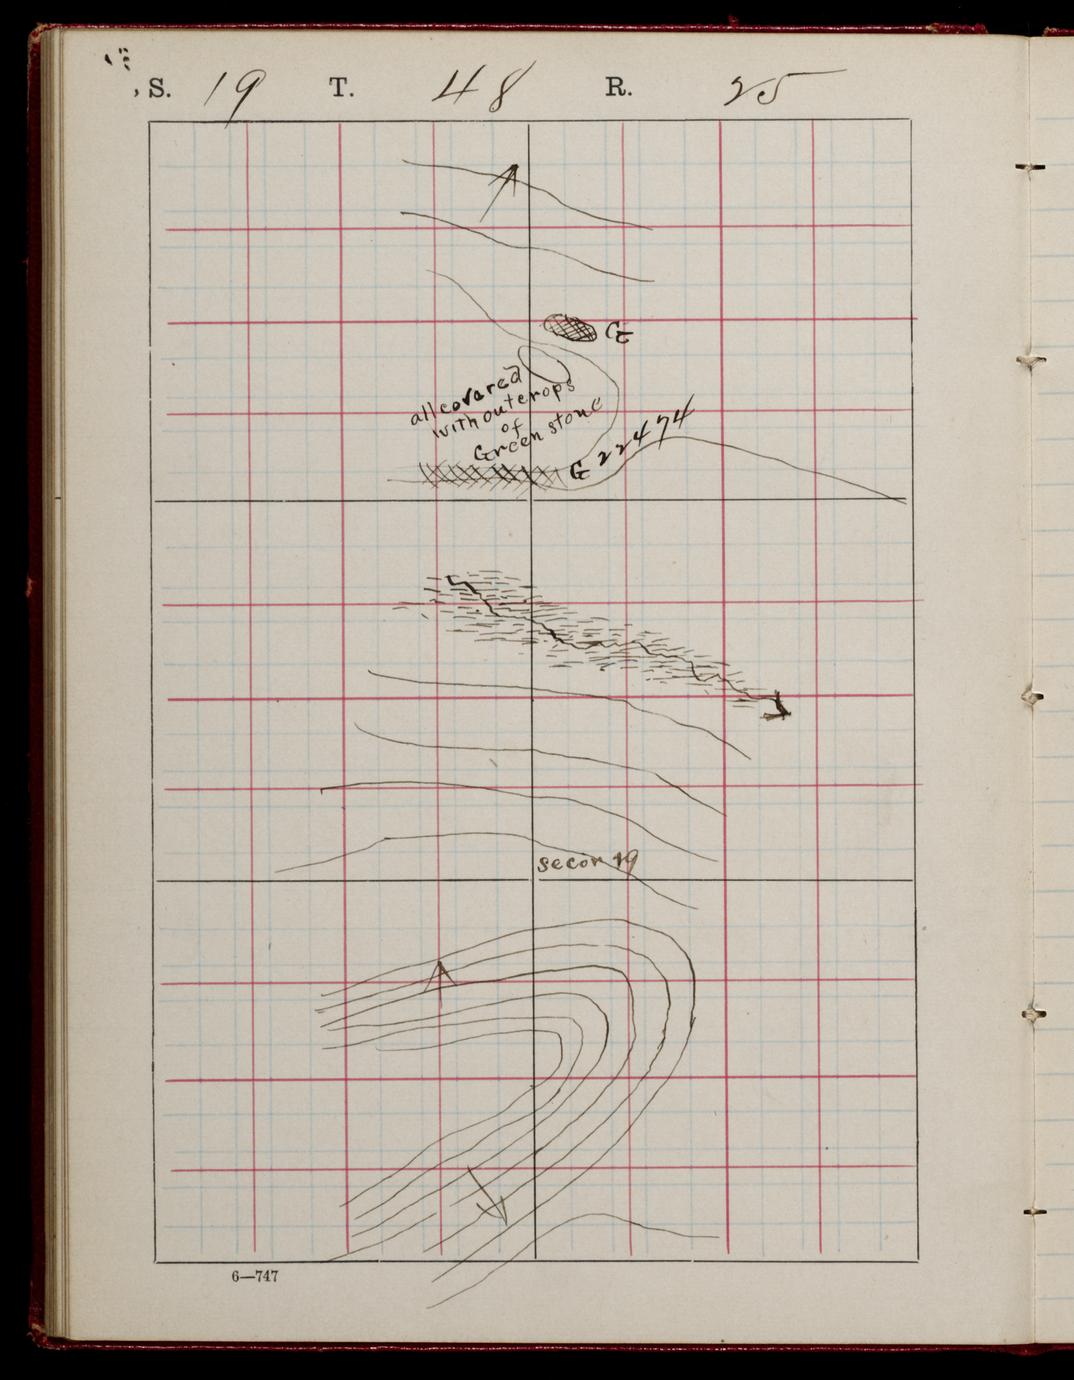 S. 19 T. 48 R. 25
G
all covered
with outcrops
of
Green stone
G 22474
secor 19
6—747